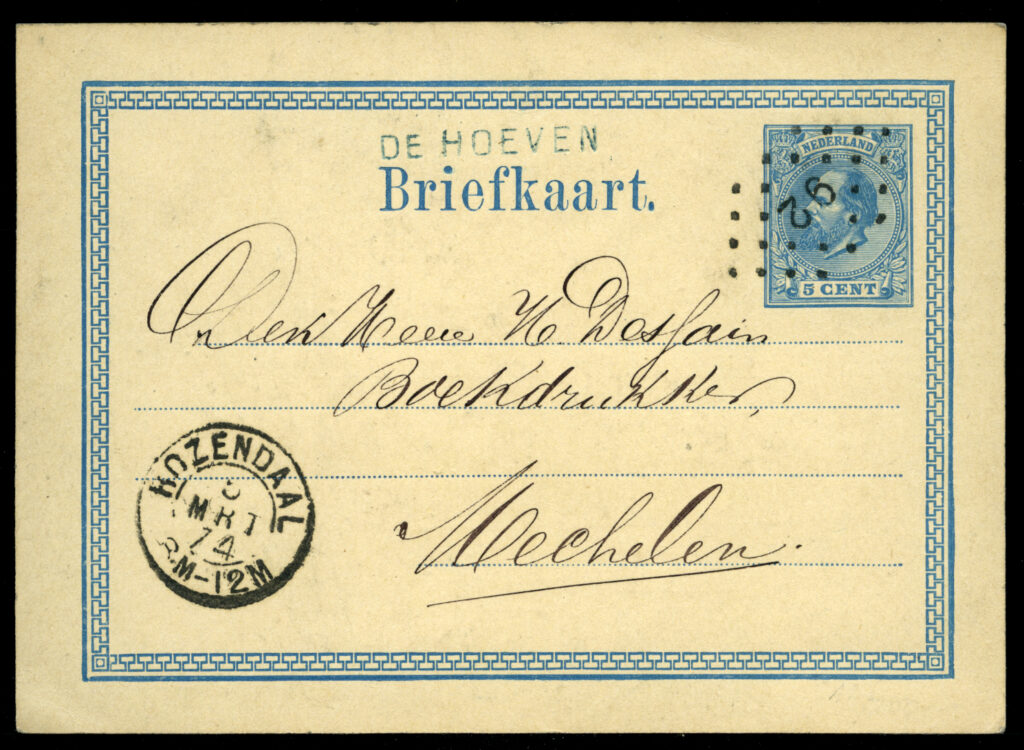 DE HOEVEN
Briefkaart.
NEDERLAND
92
5 CENT
Den Heer H. Dessain
Boekdrukker,
Mechelen.
ROZENDAAL
MRT
74
8M-12M